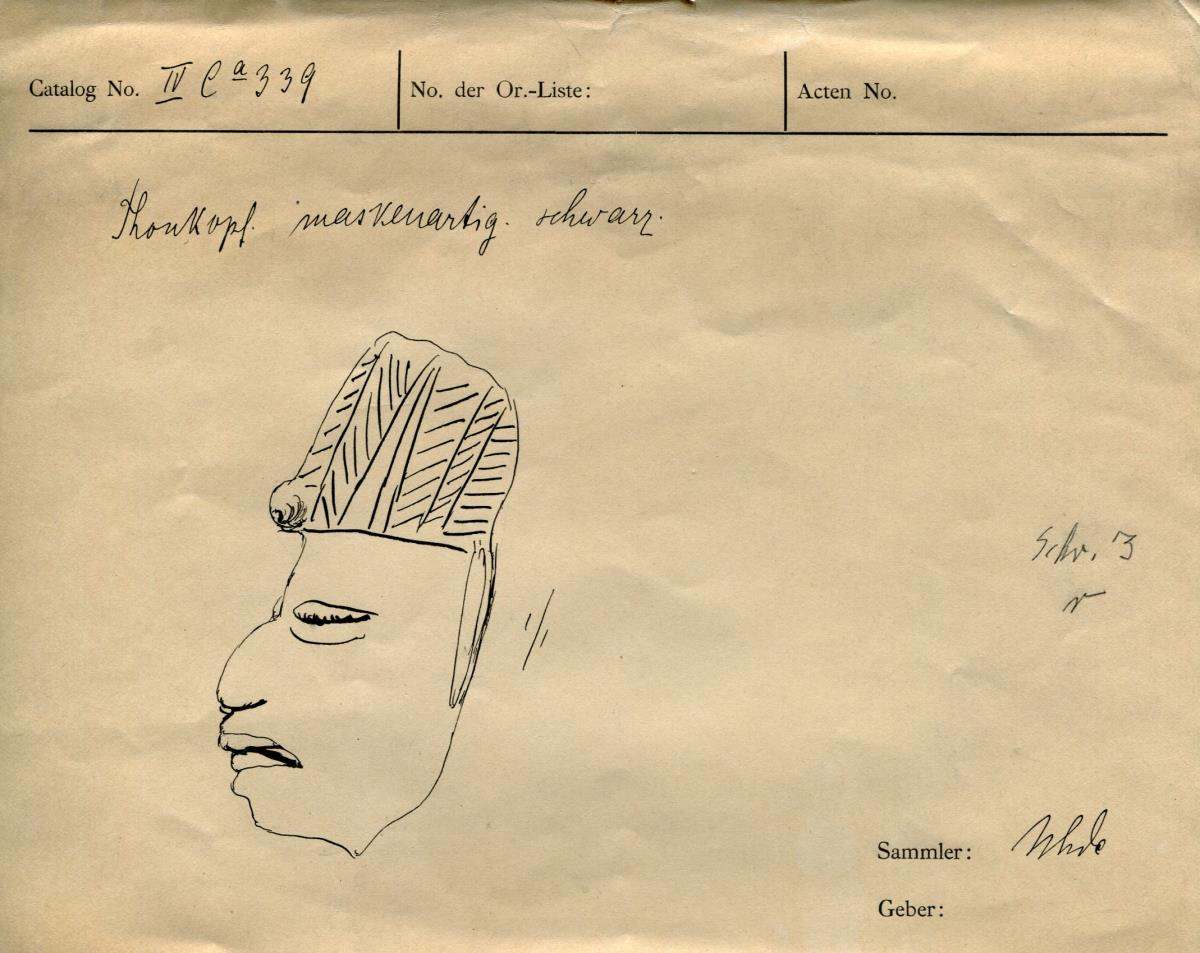 Catalog No. IV Ca 339
No. der Or.-Liste:
Acten No.
Thonkopf. maskenartig. schwarz.
1/1
Schr. 3
r
Sammler: Uhde
Geber: